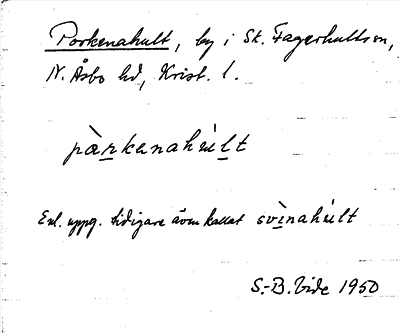 Porkenahult, by i St. Fagerhults sn,
N. Åsbo hd, Krist. l.
pàrkenahúlt
Enl. uppg. tidigare även kallat svìnahúlt
S.-B. Vide 1950